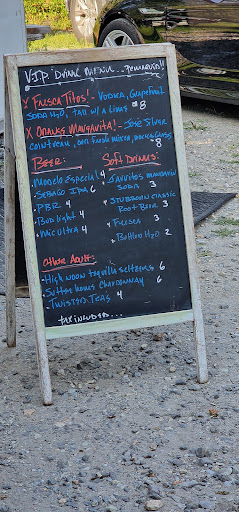 V.I.P. Drink Menu...
X Fresca Titos! - Vodka, Grapefruit
Soda H2O, Tall w/ a Lime $8
X Orange Margarita! - José Silver
Cointreau, our fresh mixed, rocks glass
$8
Beer:
Modelo Especial 4
Sebago IPA 6
PBR 4
Bud Light 4
Mic Ultra 4
Soft Drinks:
Jarritos Mandarin
Soda 3
Stubborn Classic
Root Beer 3
Fresca 3
Bottled H2O 2
Other Adult:
-High Noon Tequila Seltzers 6
-Sutter Homes Chardonnay 6
-Twisted Teas 4
tax included...